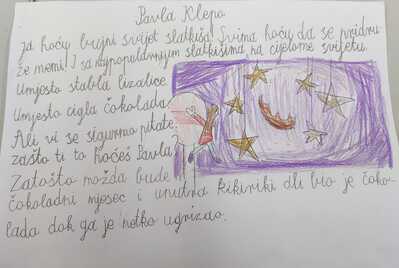 Pavla Klepo
Ja hoću brojni svijet slatkiša! Svima hoću da se pridru
že meni! I sa najpopularnijim slatkišima na cijelome svijetu.
Umjesto stabla lizalice
Umjesto cigla čokolada
Ali vi se sigurno pitate
zašto ti to hoćeš Pavla
Zatošto možda bude
čokoladni mjesec i unutra kikiriki ili bio je čoko-
lada dok ga je netko ugrizao.